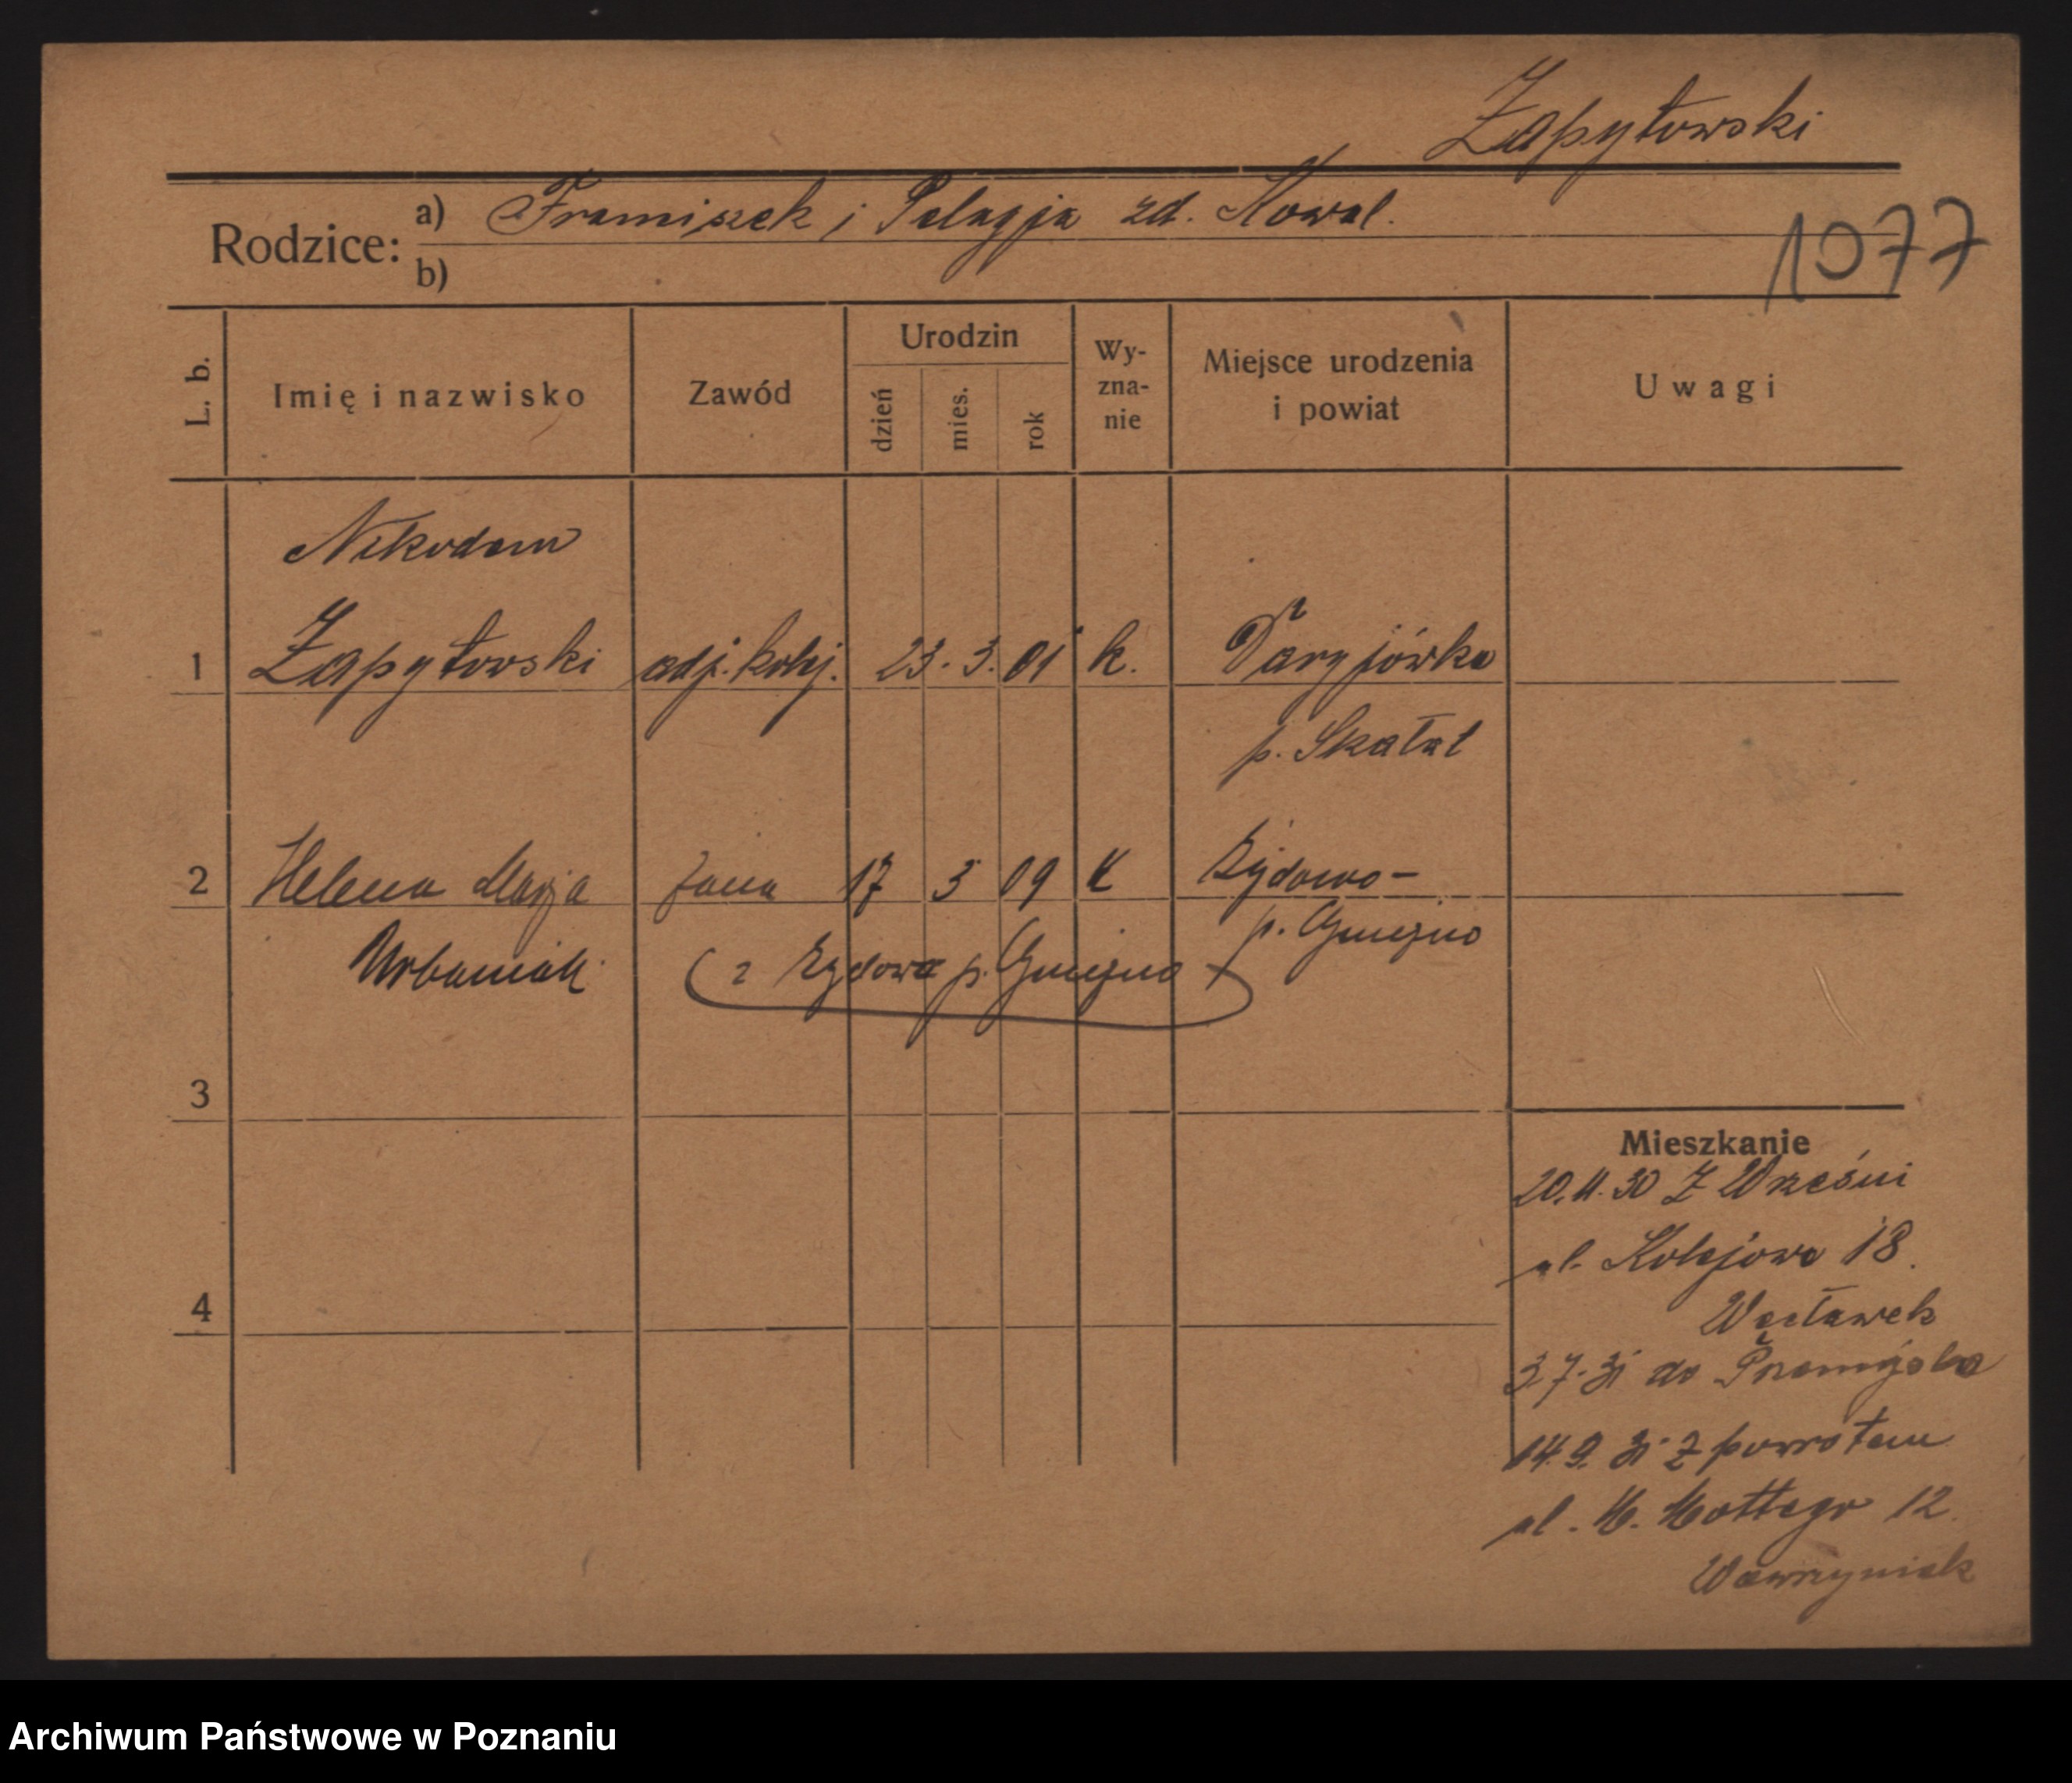 Zapytowski
Rodzice: a) Franciszek i Pelagja zd. Kowal.
b)
1077
L. b.
Imię i nazwisko
Zawód
Urodzin
dzień
mies.
rok
Wy-
zna-
nie
Miejsce urodzenia
i powiat
Uwagi
Nikodem
1 Zapytowski adj. kolej. 23. 3. 01 k. Faryjówka
p. Skałat
2 Helena Marja żona 17 3 09 k Żydowo -
p. Gniezno
Urbaniak
(z Żydowa p. Gniezno)
3
4
Mieszkanie
20.11.30 Z Wrześni
ul. Kolejowa 18.
Węcławek
3.7.31 do Przemyśla
14.9.31 Z powrotem
ul. M. Mottego 12.
Wawrzyniak
Archiwum Państwowe w Poznaniu